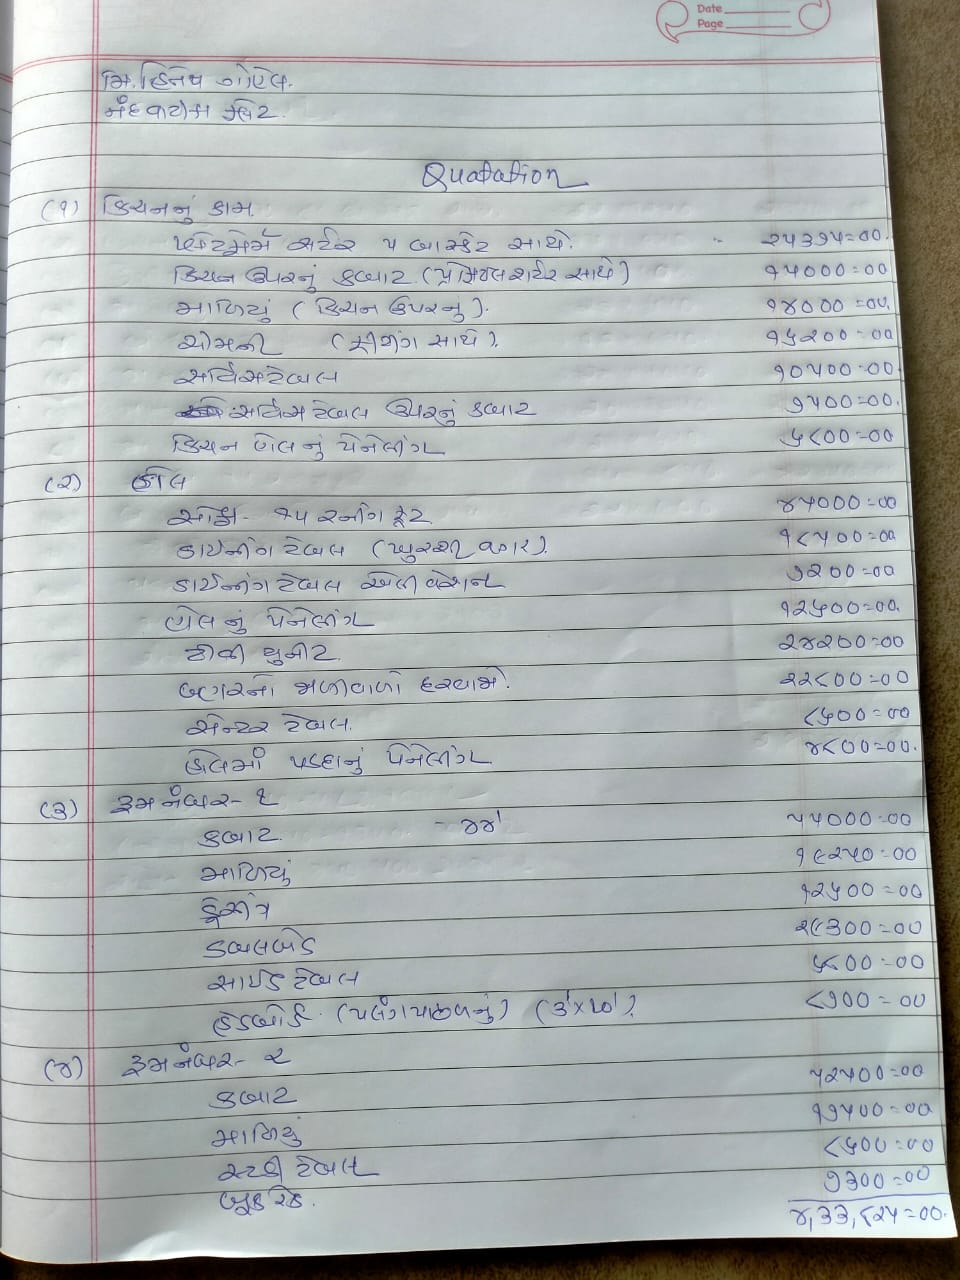 Date
Page
મિ. હિતેષ ગોએલ.
નંદવાટીકા ફ્લેટ.
Quatation
(૧) કિચનનું કામ.
શર્ટર ૫ બાસ્કેટ સાથે. ૨૫૩૭૫=૦૦
કિચન ઉપરનું કબાટ (પ્રોફાઈલ શર્ટર સાથે) ૧૫૦૦૦=૦૦
માળિયું (કિચન ઉપરનું). ૧૪૦૦૦=૦૦.
ચીમની (ફીટીંગ સાથે). ૧૬૨૦૦=૦૦
સર્વિસ ટેબલ ૧૦૫૦૦=૦૦
સર્વિસ ટેબલ ઉપરનું કબાટ ૭૫૦૦=૦૦.
કિચન વોલનું પેનેલીંગ ૬૮૦૦=૦૦
(૨) હોલ
સોફા - ૧૫ રનીંગ ફૂટ ૪૫૦૦૦=૦૦
ડાઈનીંગ ટેબલ (ખુરશી વગર). ૧૮૫૦૦=૦૦
ડાઈનીંગ ટેબલ એલીવેશન ૭૨૦૦=૦૦
વોલનું પેનેલીંગ ૧૨૬૦૦=૦૦.
ટીવી યુનીટ. ૨૪૨૦૦=૦૦
બહારનો જાળીવાળો દરવાજો. ૨૨૮૦૦=૦૦
સેન્ટર ટેબલ. ૮૬૦૦=૦૦
હોલમાં પડદાનું પેનેલીંગ ૪૮૦૦=૦૦.
(૩) રૂમ નંબર - ૧
કબાટ - ૪૪' ૫૫૦૦૦=૦૦
માળિયું ૧૯૨૫૦=૦૦
ડ્રેસીંગ ૧૨૬૦૦=૦૦
ડબલબેડ ૨૯૩૦૦=૦૦
સાઈડ ટેબલ ૬૮૦૦=૦૦
હેડબોર્ડ (પલંગ પાછળનું) ૮૭૦૦=૦૦
(૪) રૂમ નંબર - ૨
કબાટ ૫૨૫૦૦=૦૦
માળિયું ૧૭૫૦૦=૦૦
સ્ટડી ટેબલ ૮૬૦૦=૦૦
બુક રેક. ૭૩૦૦=૦૦
૪,૩૩,૮૨૫=૦૦.